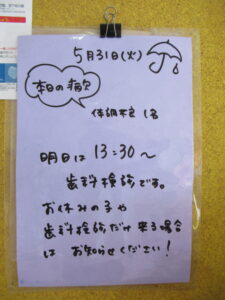 5月31日(火)
本日の病欠
体調不良 1名
明日は 13:30〜
歯科検診です。
お休みの子や
歯科検診だけ来る場合
は お知らせください!